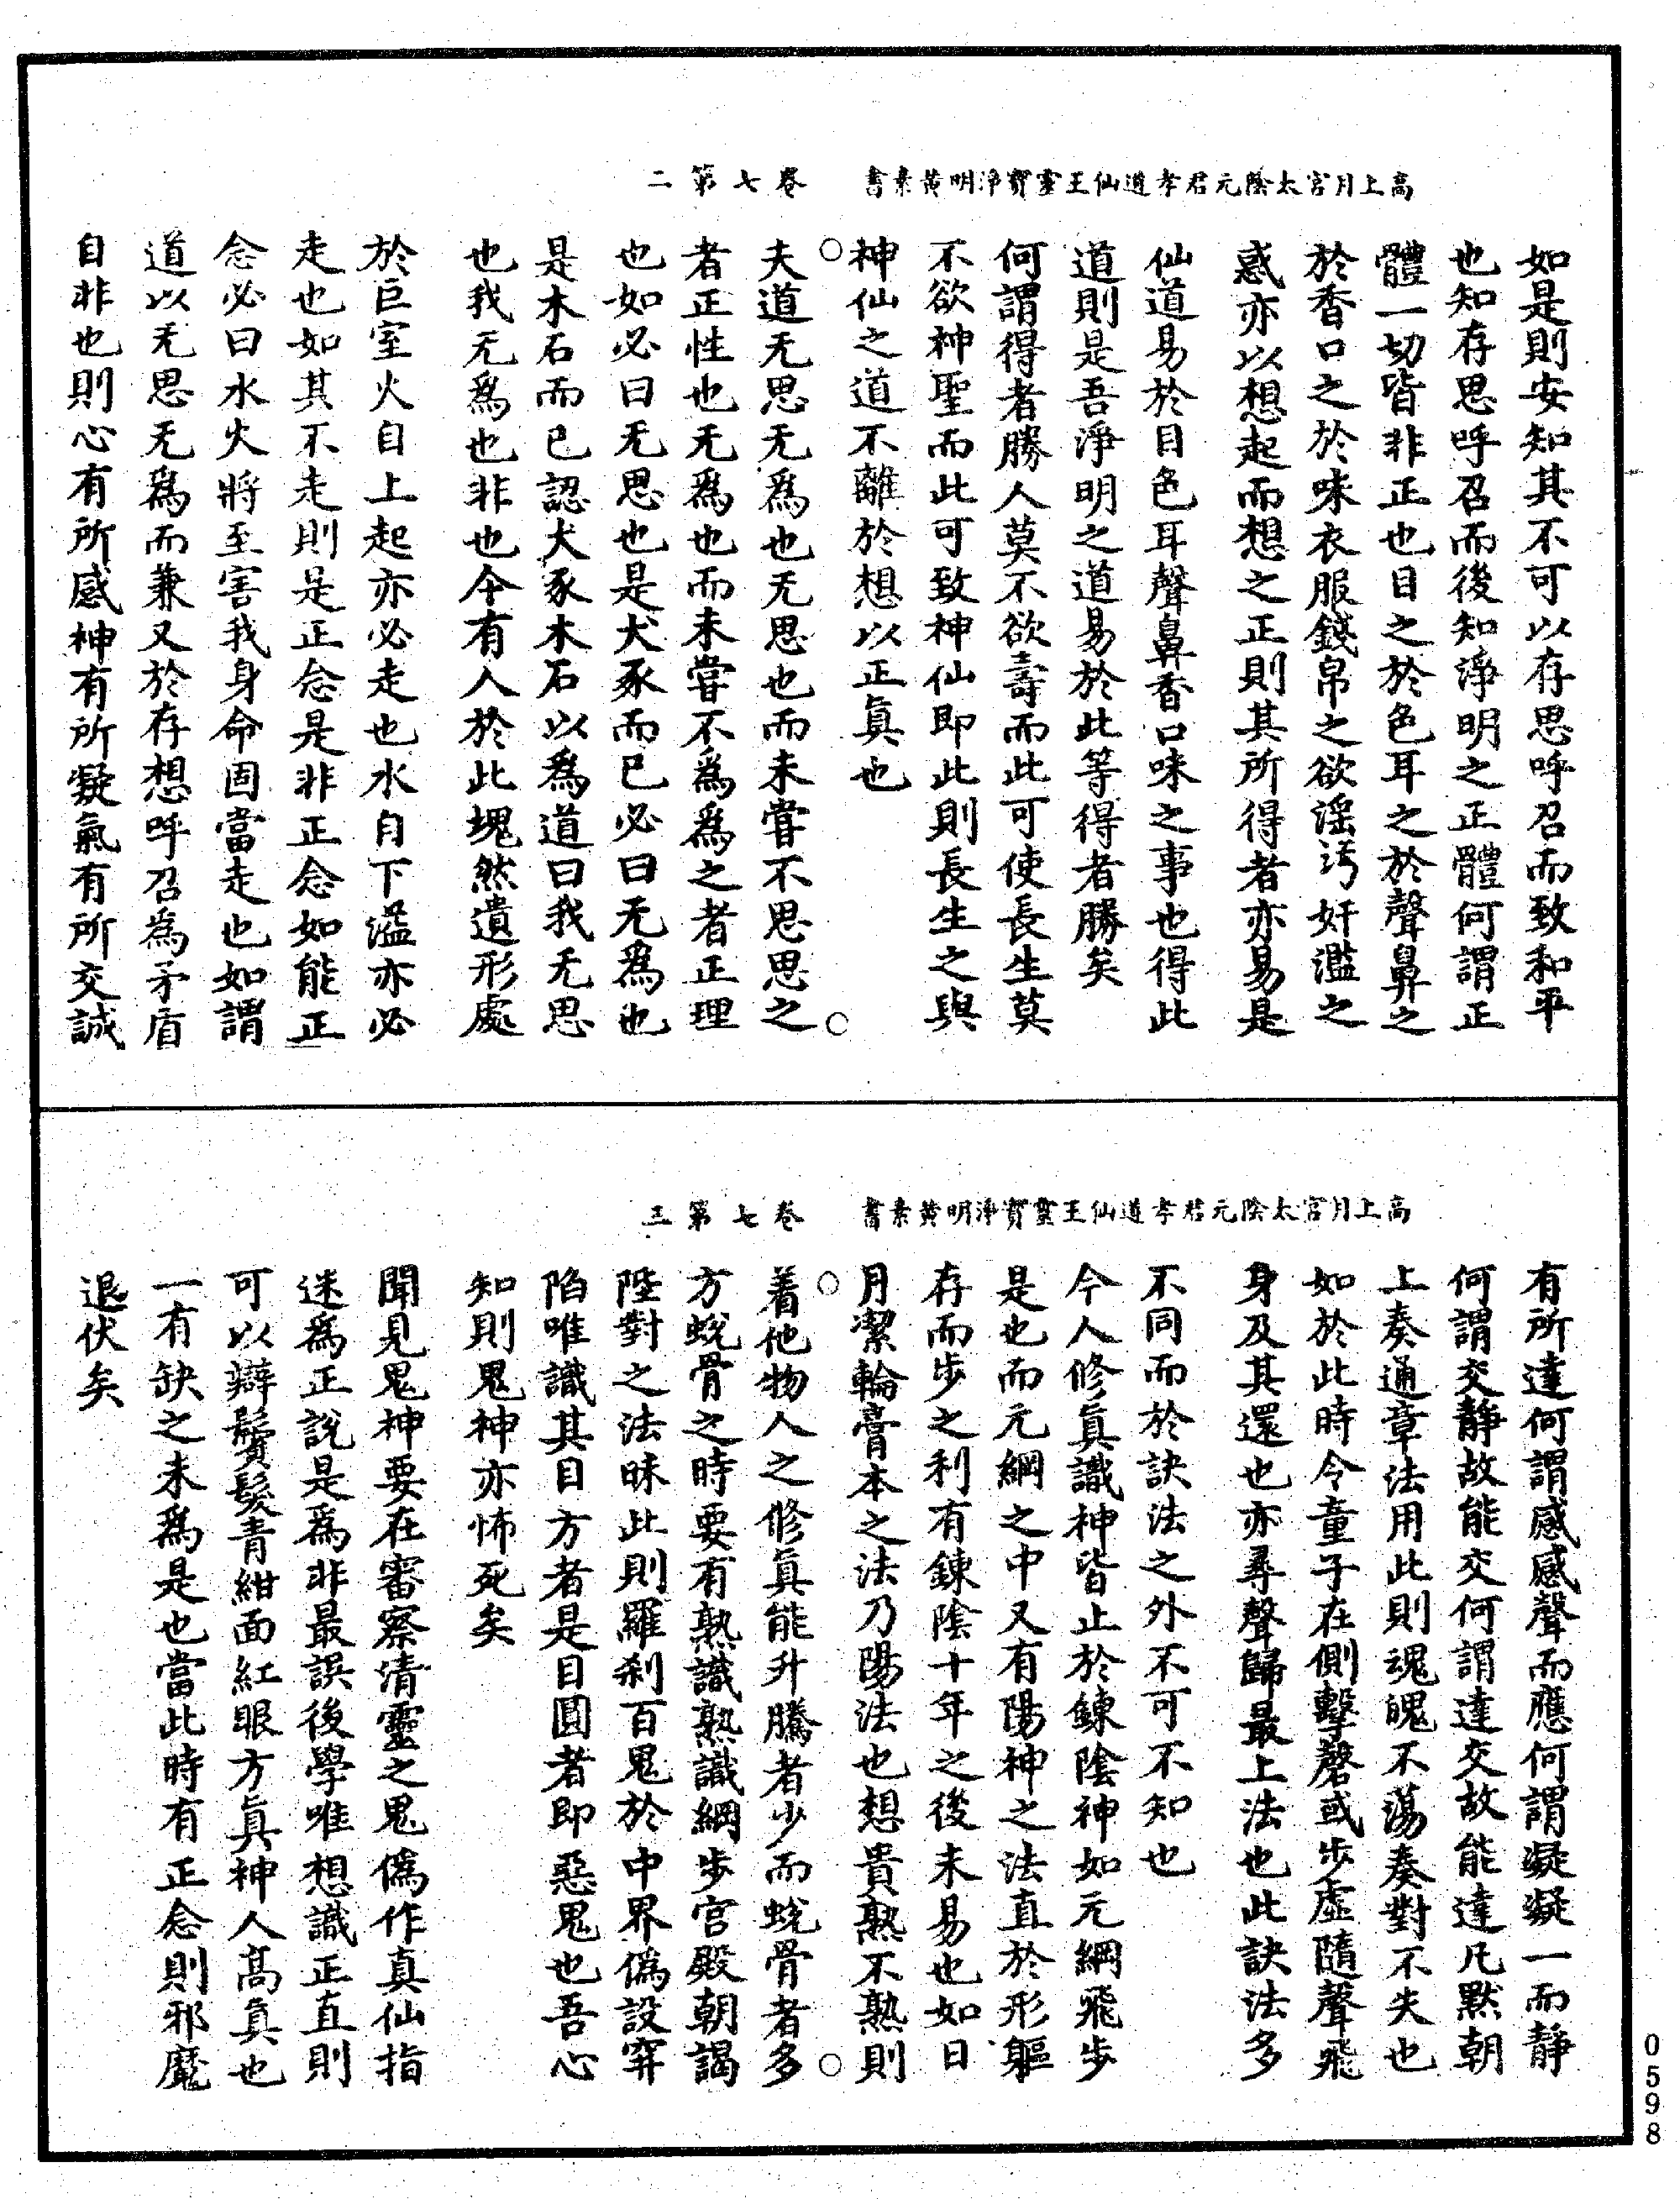 高上月宮太陰元君孝道仙王靈寶淨明黃素書　卷七第二
如是則安知其不可以存思呼召而致和平
也知存思呼召而後知淨明之正體何謂正
體一切皆非正也目之於色耳之於聲鼻之
於香口之於味衣服錢帛之欲滛污奸濫之
惑亦以想起而想之正則其所得者亦易是
仙道易於目色耳聲鼻香口味之事也得此
道則是吾淨明之道易於此等得者勝矣
何謂得者勝人莫不欲壽而此可使長生莫
不欲神聖而此可致神仙即此則長生之與
神仙之道不離於想以正真也
○
夫道无思无為也无思也而未嘗不思思之
者正性也无為也而未嘗不為為之者正理
也如必曰无思也是犬豕而已必曰无為也
是木石而已認犬豕木石以為道曰我无思
也我无為也非也今有人於此塊然遺形處
○
於巨室火自上起亦必走也水自下溢亦必
走也如其不走則是正念是非正念如能正
念必曰水火將至害我身命固當走也如謂
道以无思无為而兼又於存想呼召為矛盾
自非也則心有所感神有所凝氣有所交誠
高上月宮太陰元君孝道仙王靈寶淨明黃素書　卷七第三
有所達何謂感感聲而應何謂凝凝一而靜
何謂交靜故能交何謂達交故能達凡默朝
上奏通章法用此則魂魄不蕩奏對不失也
如於此時令童子在側擊磬或步虛隨聲飛
身及其還也亦尋聲歸最上法也此訣法多
不同而於訣法之外不可不知也
今人修真識神皆止於鍊陰神如元綱飛步
是也而元綱之中又有陽神之法直於形軀
存而步之利有鍊陰十年之後未易也如日
月潔輪膏本之法乃陽法也想貴熟不熟則
○
着他物人之修真能升騰者少而蛻骨者多
方蛻骨之時要有熟識熟識綱步宮殿朝謁
陛對之法昧此則羅剎百鬼於中界偽設穽
陷唯識其目方者是目圓者即惡鬼也吾心
知則鬼神亦怖死矣
○
聞見鬼神要在審察清靈之鬼偽作真仙指
迷為正說是為非最誤後學唯想識正直則
可以辯鬢髮青紺面紅眼方真神人高真也
一有缺之未為是也當此時有正念則邪魔
退伏矣
0598